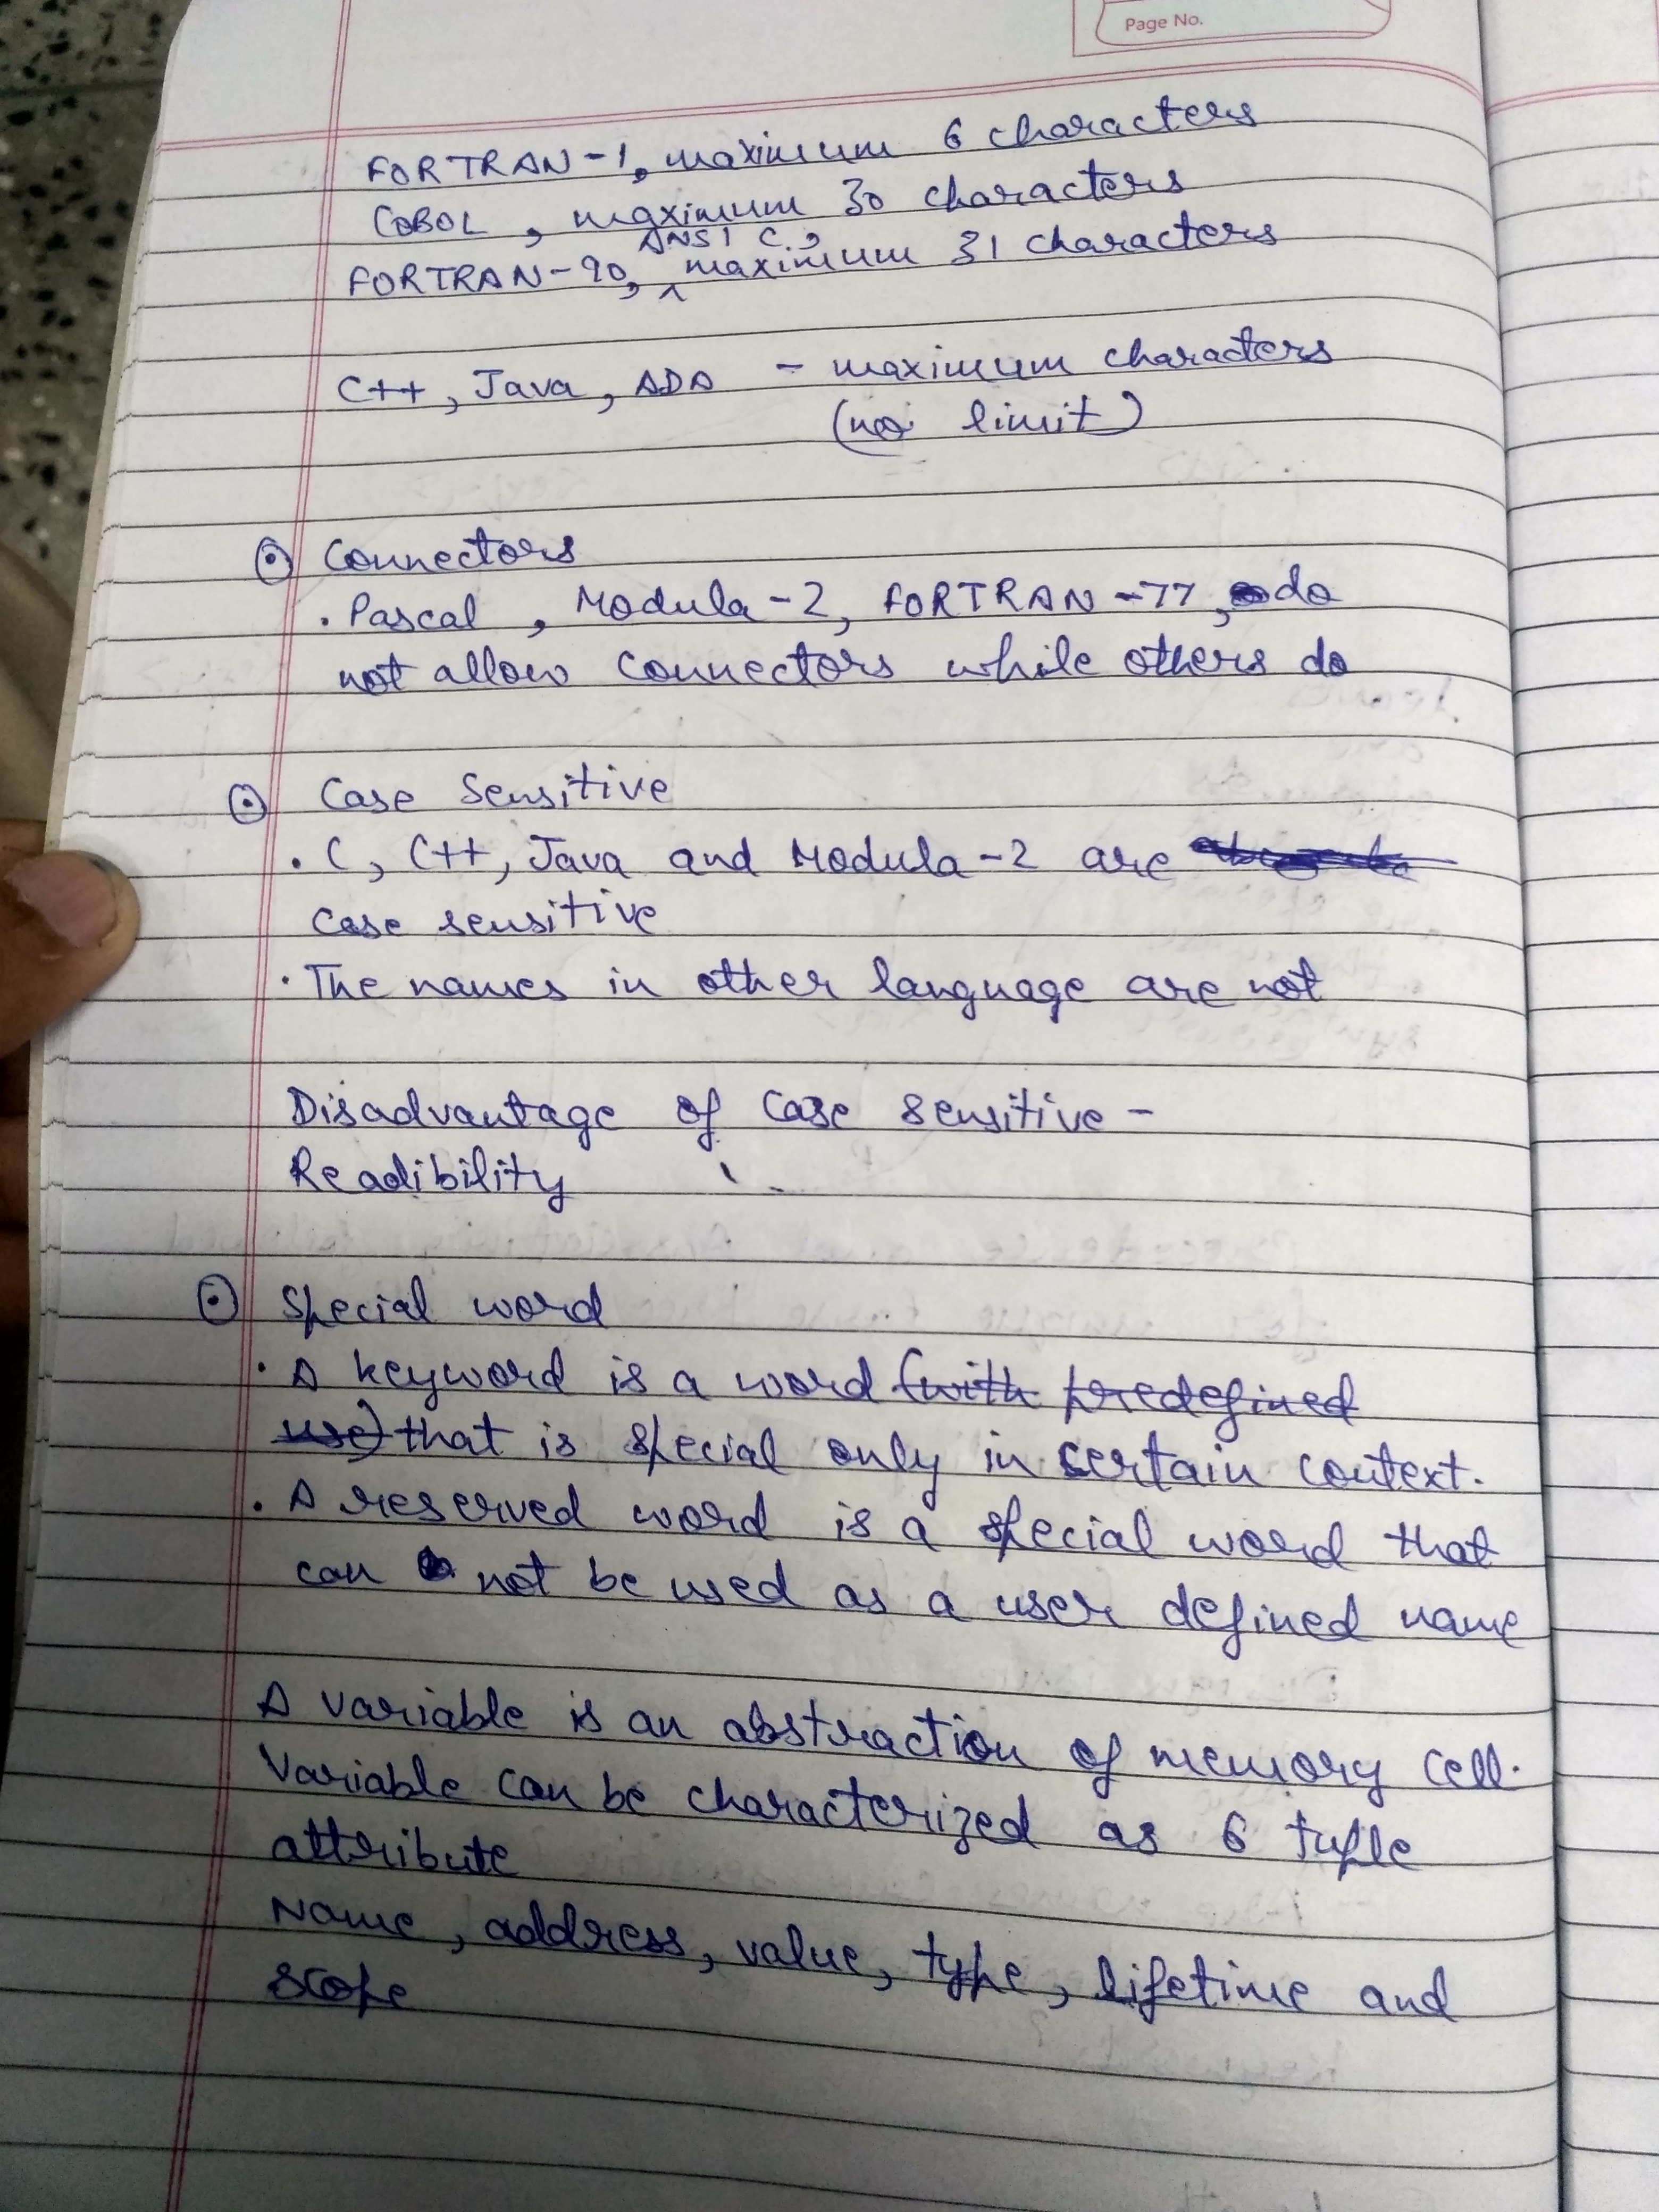 Page No.
FORTRAN-1, maximum 6 characters
COBOL, maximum 30 characters
ANSI C,
FORTRAN-90, ^ maximum 31 characters
C++, Java, ADA - maximum characters
(no limit)
⊙ Connectors
. Pascal, Modula-2, FORTRAN-77, do
not allow connectors while others do
⊙ Case Sensitive
. C, C++, Java and Modula-2 are
case sensitive
. The names in other language are not
Disadvantage of case sensitive -
Readibility
⊙ Special word
. A keyword is a word (with predefined
use) that is special only in certain context.
. A reserved word is a special word that
can not be used as a user defined name
A variable is an abstraction of memory cell.
Variable can be characterized as 6 tuple
attribute
Name, address, value, type, lifetime and
scope